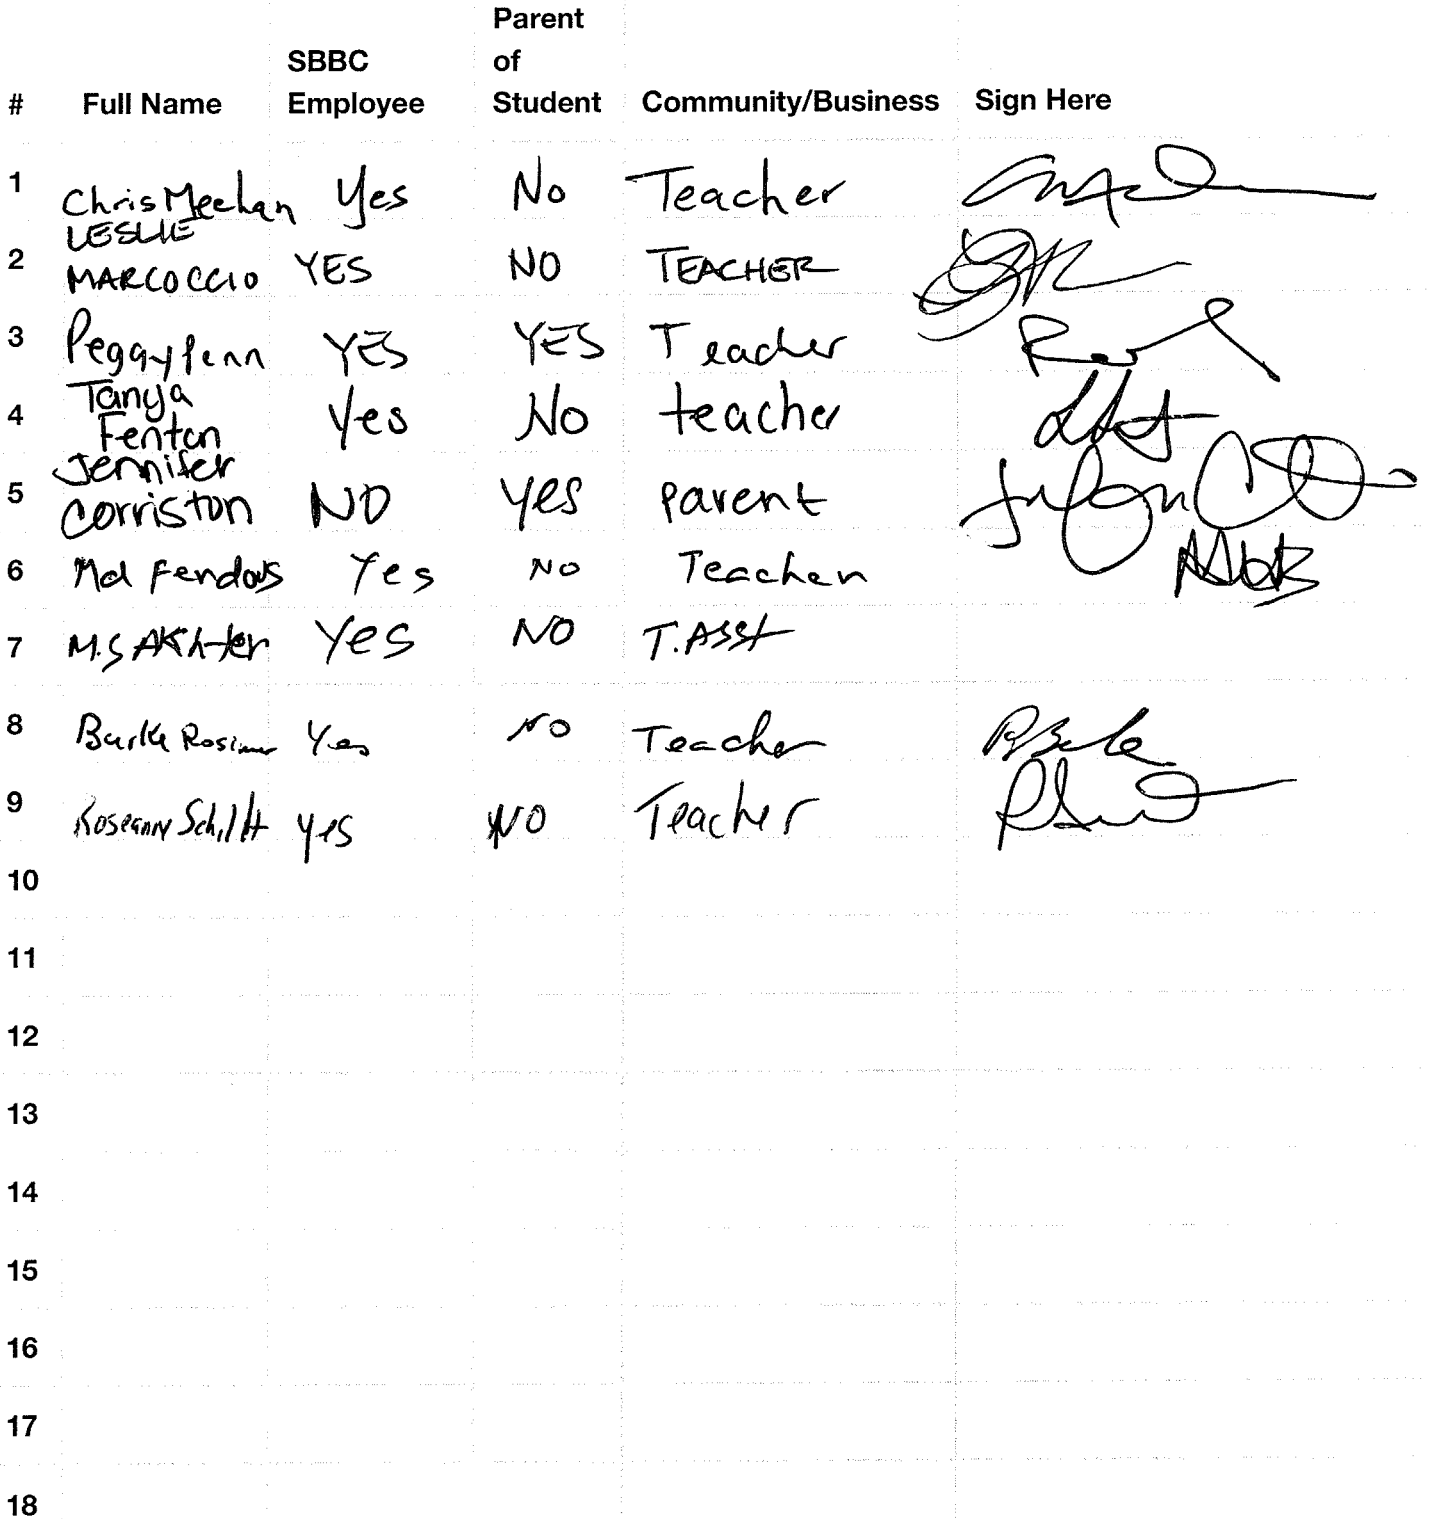 Parent
SBBC of
# Full Name Employee Student Community/Business Sign Here
1 Chris Meehan Yes No Teacher
LESLIE
2 MARCOCCIO YES NO TEACHER
3 Peggy Penn YES YES Teacher
Tanya
4 Fenton Yes No teacher
Jennifer
5 Corriston NO yes parent
6 Md Ferdous Yes NO Teacher
7 M.S AKhter Yes NO T.ASST
8 Burke Yes NO Teacher
9 Roseanne Schildt yes NO Teacher
10
11
12
13
14
15
16
17
18